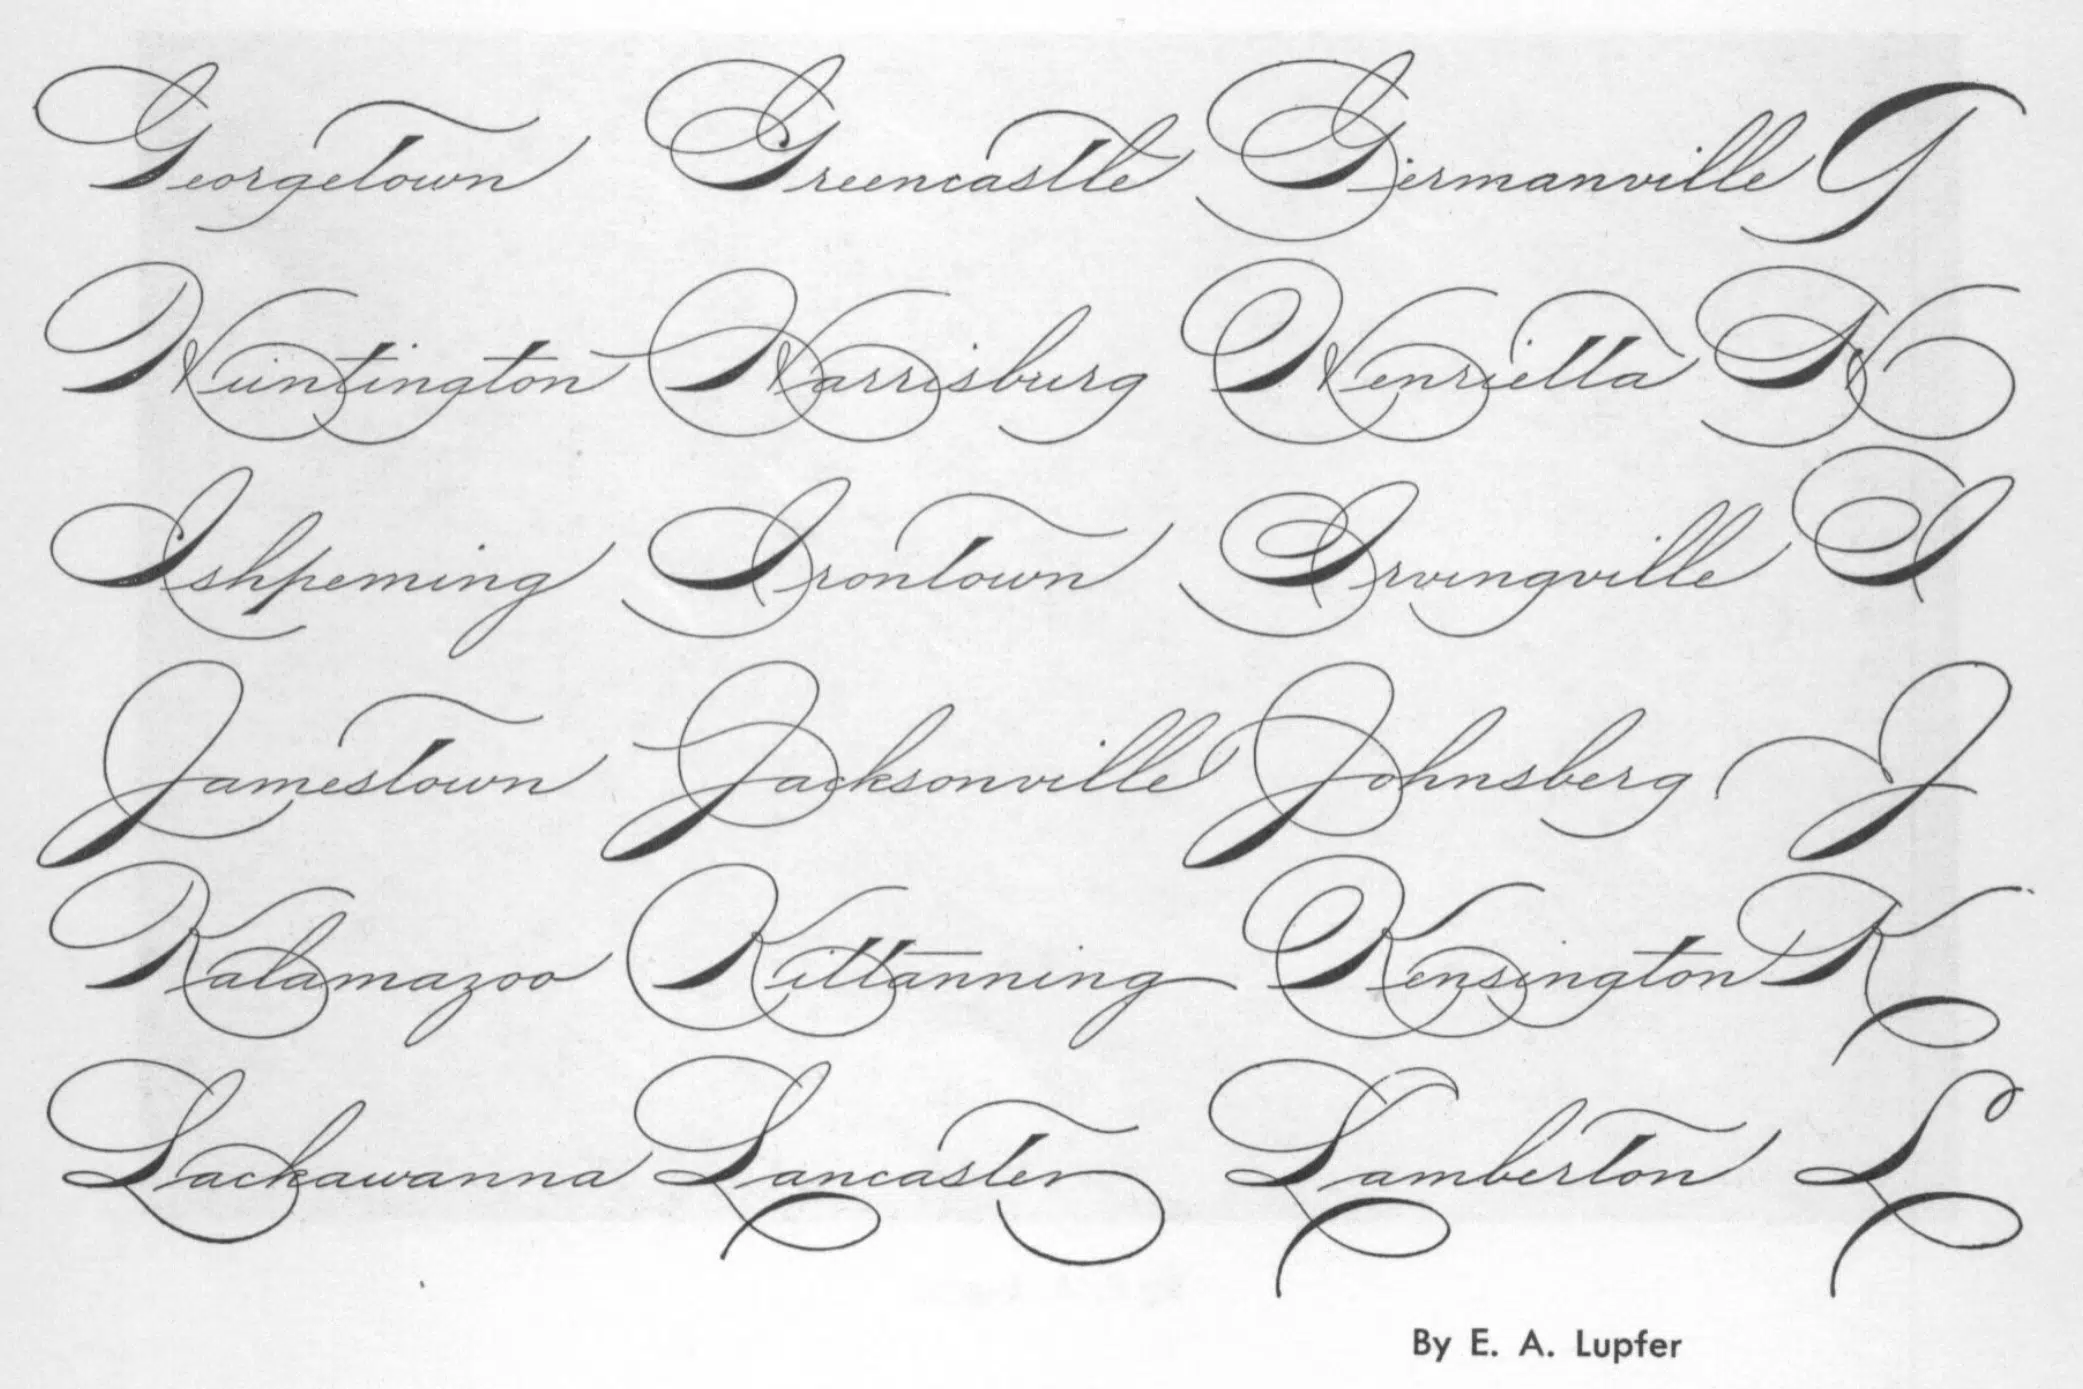 Georgetown Greencastle Germanville G
Huntington Harrisburg Henrietta H
Ishpeming Irontown Irvingville I
Jamestown Jacksonville Johnsberg J
Kalamazoo Kittanning Kensington K
Lackawanna Lancaster Lamberton L
By E. A. Lupfer